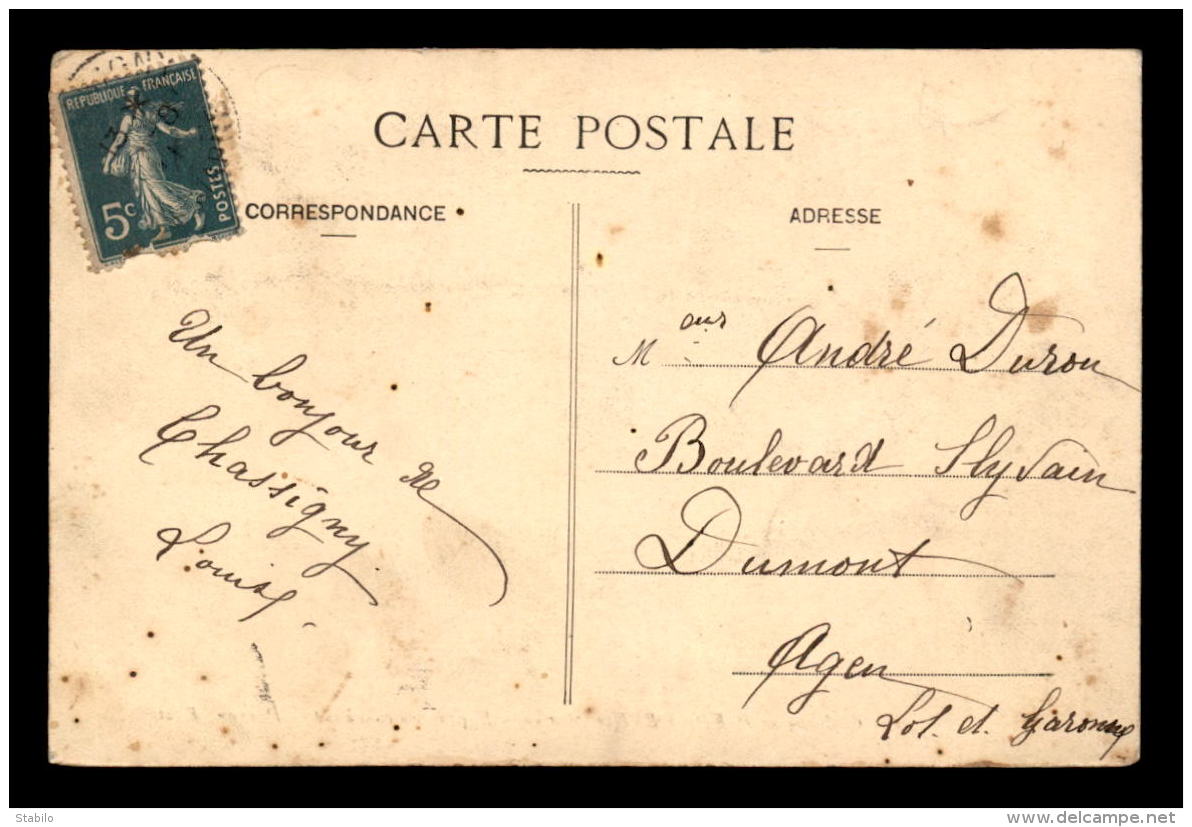 RÉPUBLIQUE FRANÇAISE
POSTES
5c
CARTE POSTALE
CORRESPONDANCE
ADRESSE
Un bonjour de
Chassigny
Louise
Mour André Durou
Boulevard Slyvain
Dumont
Agen
Lot. et. Garonne
Stabilo
www.delcampe.net